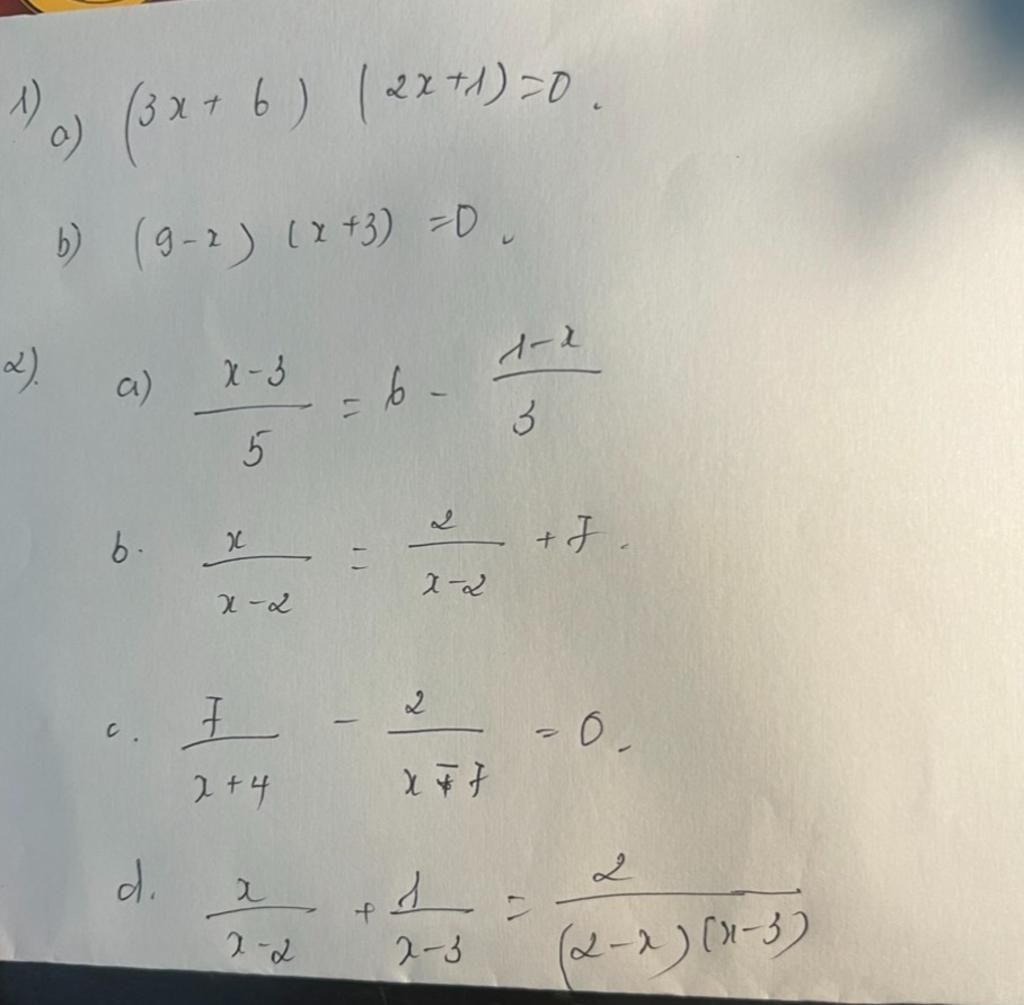 1) a) (3x + 6) (2x+1)=0.
b) (9-x) (x+3) =0.
2). a) \frac{x-3}{5} = 6 - \frac{1-x}{3}
b. \frac{x}{x-2} = \frac{2}{x-2} + 7.
c. \frac{7}{x+4} - \frac{2}{x-7} = 0.
d. \frac{x}{x-2} + \frac{1}{x-3} = \frac{2}{(2-x)(x-3)}